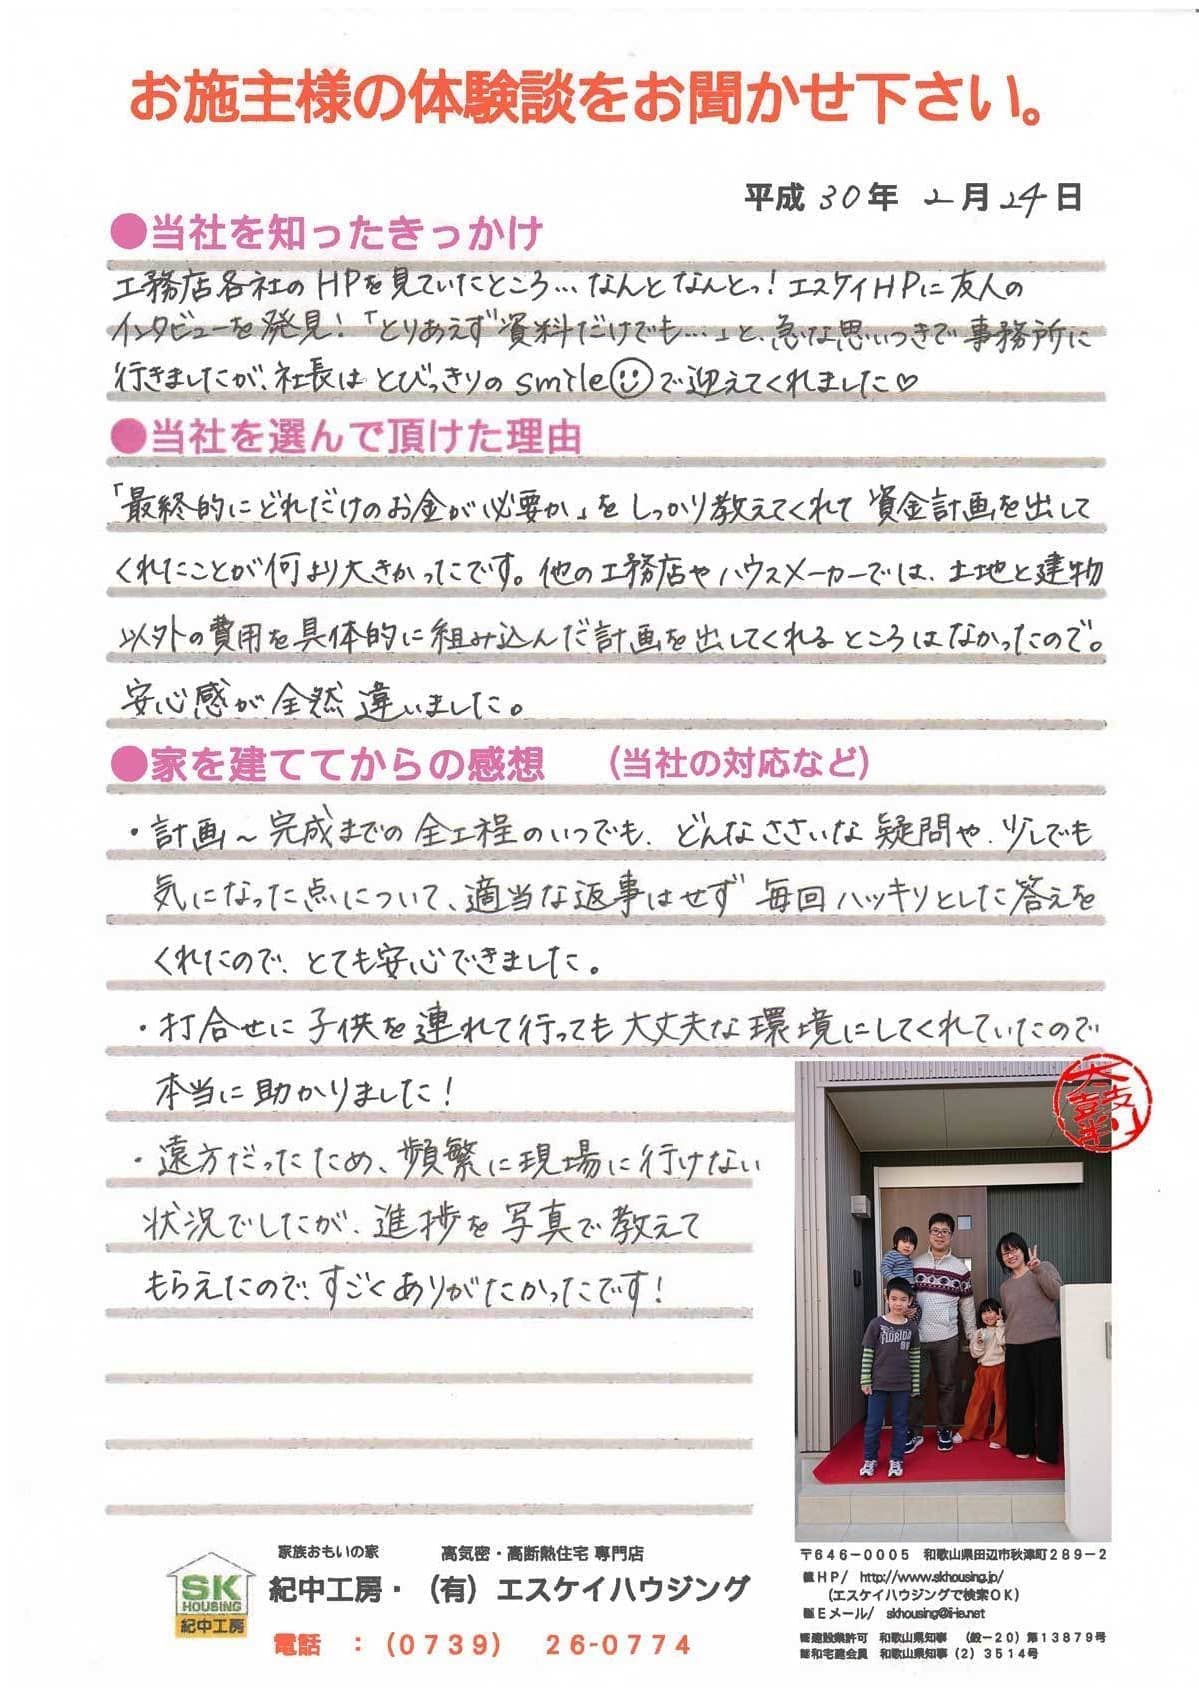 お施主様の体験談をお聞かせ下さい。
平成30年 2月24日
●当社を知ったきっかけ
工務店各社のHPを見ていたところ…なんとなんとっ!エスケイHPに友人の
インタビューを発見!「とりあえず資料だけでも…」と、急な思いつきで事務所に
行きましたが、社長はとびっきりのsmile☺で迎えてくれました♡
●当社を選んで頂けた理由
「最終的にどれだけのお金が必要か」をしっかり教えてくれて資金計画を出して
くれたことが何より大きかったです。他の工務店やハウスメーカーでは、土地と建物
以外の費用を具体的に組み込んだ計画を出してくれるところはなかったので。
安心感が全然違いました。
●家を建ててからの感想 (当社の対応など)
・計画~完成までの全工程のいつでも、どんなささいな疑問や、少しでも
気になった点について、適当な返事はせず毎回ハッキリとした答えを
くれたので、とても安心できました。
・打合せに子供を連れて行っても大丈夫な環境にしてくれていたので
本当に助かりました!
・遠方だったため、頻繁に現場に行けない
状況でしたが、進捗を写真で教えて
もらえたので、すごくありがたかったです!
FLORIDA
SK
HOUSING
紀中工房
家族おもいの家 高気密・高断熱住宅 専門店
紀中工房・(有)エスケイハウジング
電話 :(0739) 26-0774
〒646-0005 和歌山県田辺市秋津町289-2
HP/ http://www.skhousing.jp/
(エスケイハウジングで検索OK)
Eメール/ skhousing@i-ie.net
建設業許可 和歌山県知事 (般-20)第13879号
和宅建会員 和歌山県知事(2)3514号